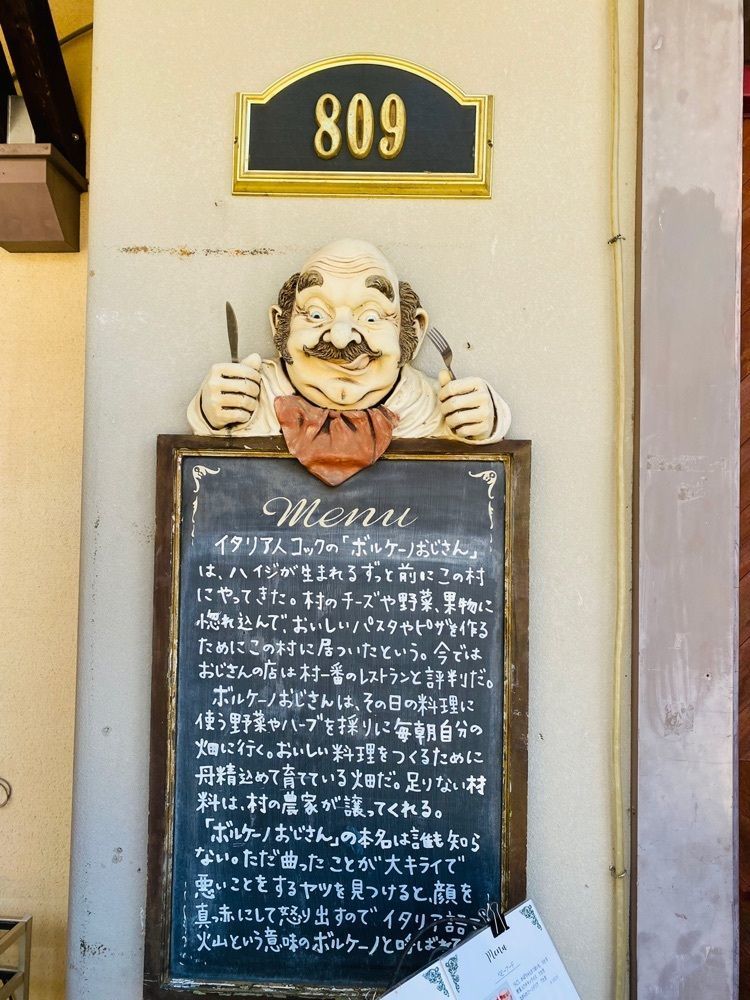 809
Menu
イタリア人コックの「ボルケーノおじさん」
は、ハイジが生まれるずっと前にこの村
にやってきた。村のチーズや野菜、果物に
惚れ込んで、おいしいパスタやピザを作る
ためにこの村に居ついたという。今では
おじさんの店は村一番のレストランと評判だ。
ボルケーノおじさんは、その日の料理に
使う野菜やハーブを採りに毎朝自分の
畑に行く。おいしい料理をつくるために
丹精込めて育てている畑だ。足りない材
料は、村の農家が譲ってくれる。
「ボルケーノおじさん」の本名は誰も知ら
ない。ただ曲ったことが大キライで
悪いことをするヤツを見つけると、顔を
真っ赤にして怒り出すのでイタリア語
火山という意味のボルケーノと呼ばれて
Menu